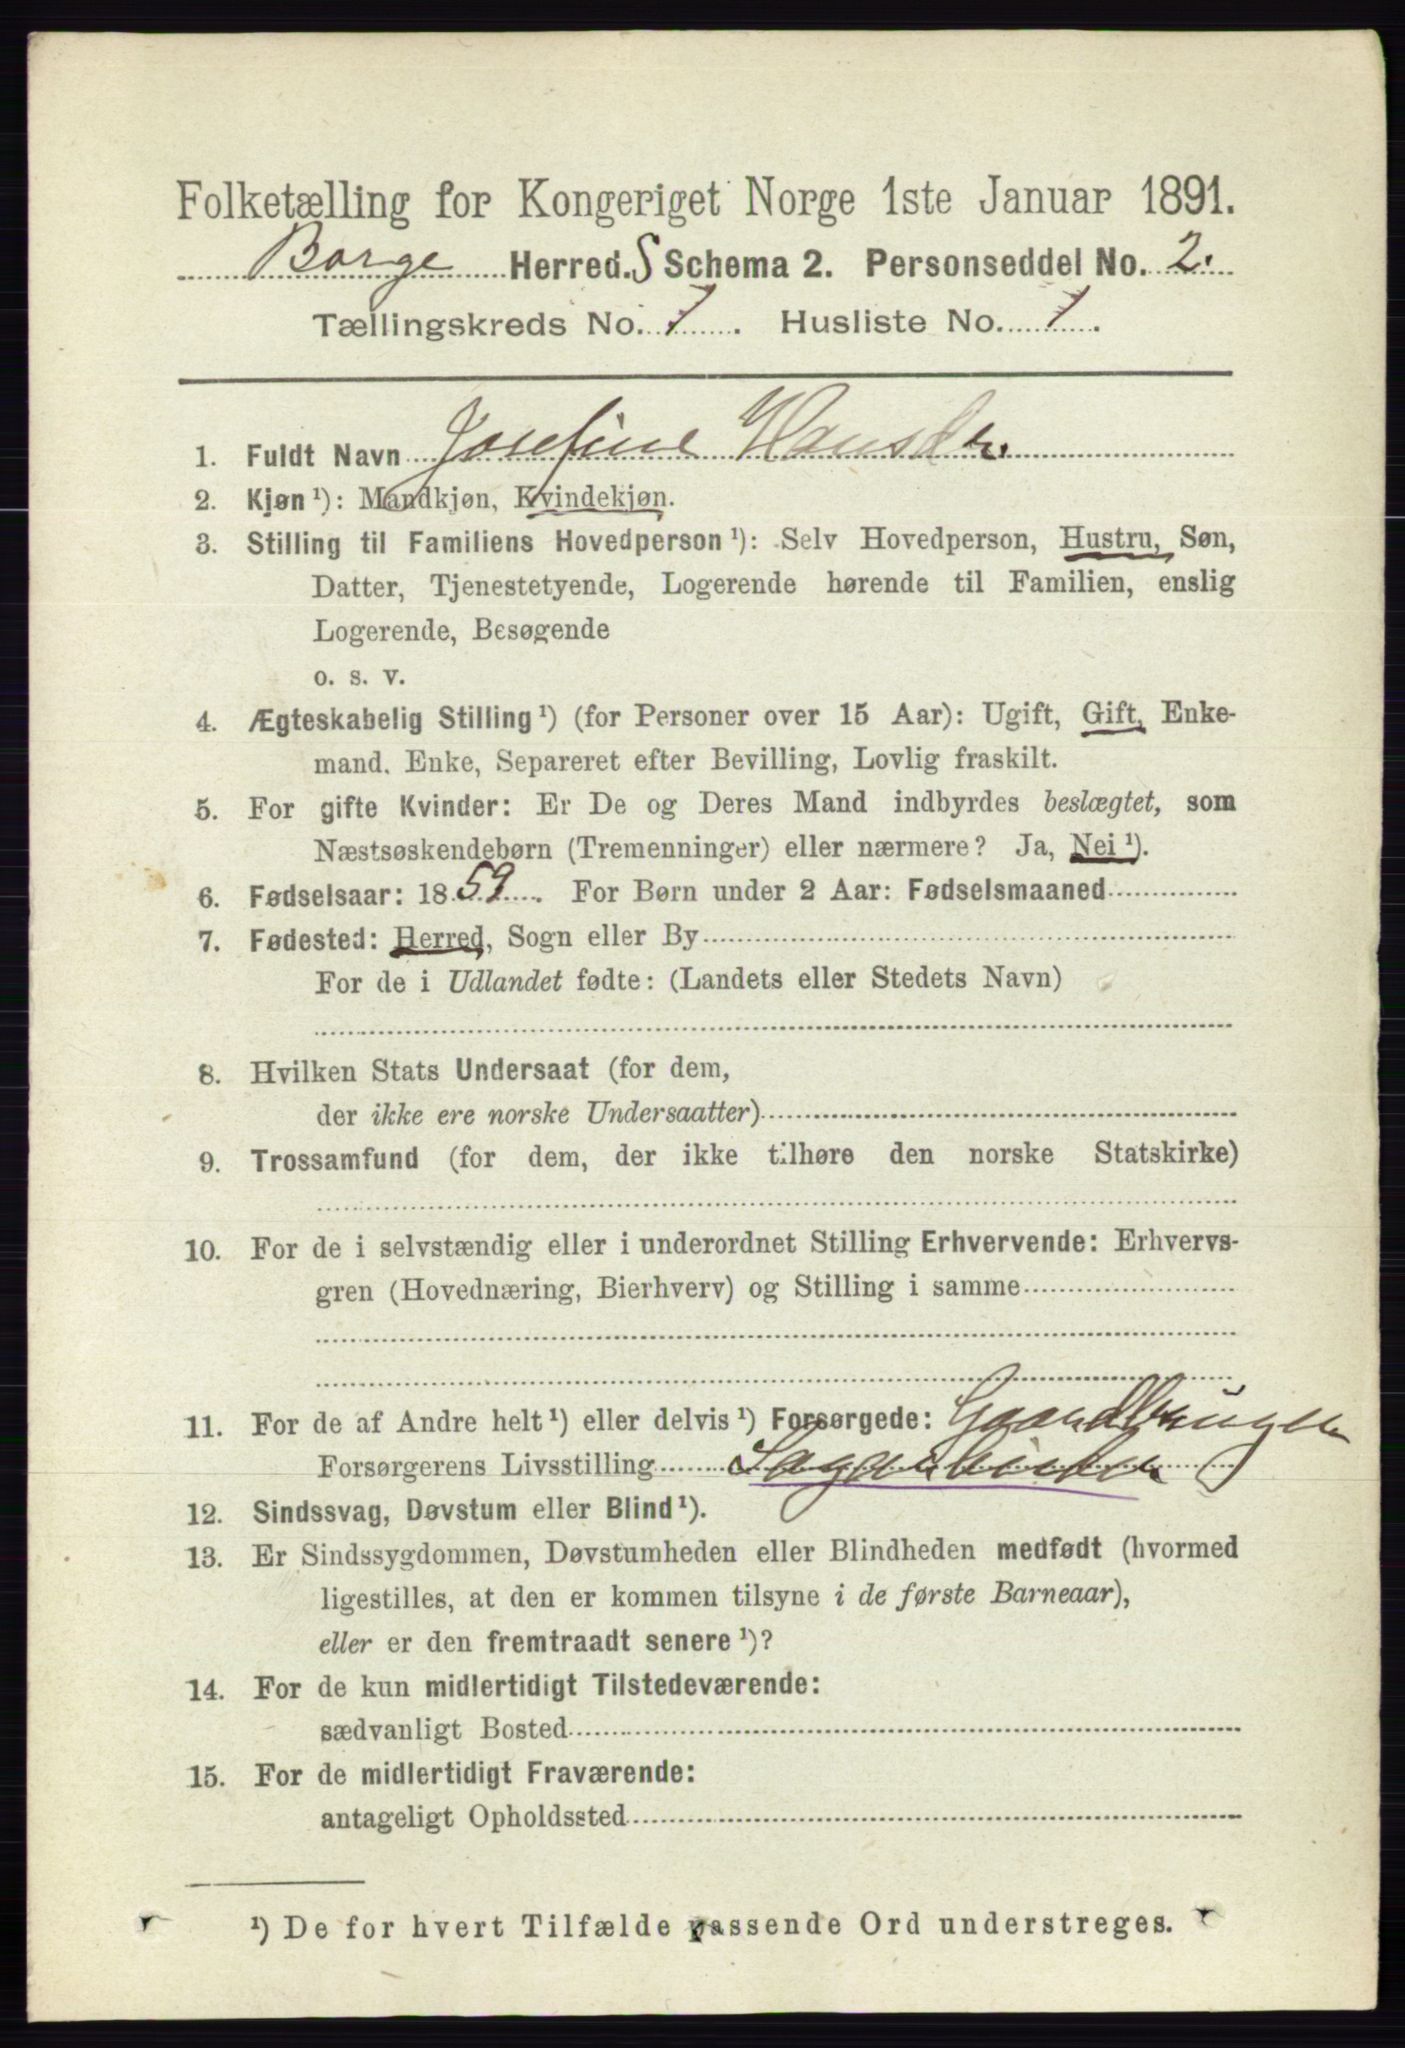 Folketælling for Kongeriget Norge 1ste Januar 1891.
Borge Herred. S Schema 2. Personseddel No. 2.
Tællingskreds No. 7. Husliste No. 1.
1. Fuldt Navn Josefine Hansdr.
2. Kjøn ¹): Mandkjøn, Kvindekjøn.
3. Stilling til Familiens Hovedperson ¹): Selv Hovedperson, Hustru, Søn,
Datter, Tjenestetyende, Logerende hørende til Familien, enslig
Logerende, Besøgende
o. s. v.
4. Ægteskabelig Stilling ¹) (for Personer over 15 Aar): Ugift, Gift, Enke-
mand, Enke, Separeret efter Bevilling, Lovlig fraskilt.
5. For gifte Kvinder: Er De og Deres Mand indbyrdes beslægtet, som
Næstsøskendebørn (Tremenninger) eller nærmere? Ja, Nei ¹).
6. Fødselsaar: 1859. For Børn under 2 Aar: Fødselsmaaned
7. Fødested: Herred, Sogn eller By
For de i Udlandet fødte: (Landets eller Stedets Navn)
8. Hvilken Stats Undersaat (for dem,
der ikke ere norske Undersaatter)
9. Trossamfund (for dem, der ikke tilhøre den norske Statskirke)
10. For de i selvstændig eller i underordnet Stilling Erhvervende: Erhvervs-
gren (Hovednæring, Bierhverv) og Stilling i samme
11. For de af Andre helt ¹) eller delvis ¹) Forsørgede: Gaardbruger
Forsørgerens Livsstilling Sagarbeider
12. Sindssvag, Døvstum eller Blind ¹).
13. Er Sindssygdommen, Døvstumheden eller Blindheden medfødt (hvormed
ligestilles, at den er kommen tilsyne i de første Barneaar),
eller er den fremtraadt senere ¹)?
14. For de kun midlertidigt Tilstedeværende:
sædvanligt Bosted
15. For de midlertidigt Fraværende:
antageligt Opholdssted
¹) De for hvert Tilfælde passende Ord understreges.